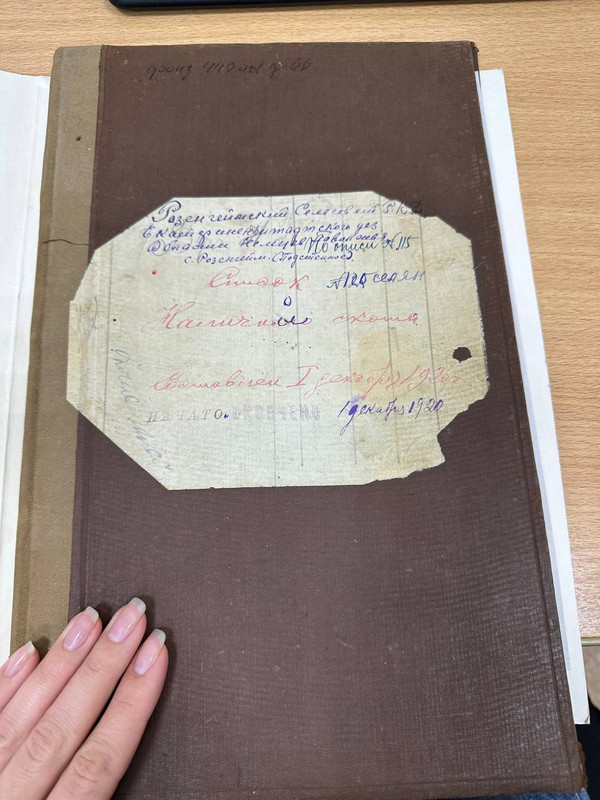 фонд 449 оп 1 д-66
Розенгеймский Сельский С.Р.К.Д
Екатериненштадтского уез
Области Немцев Поволжья По описи №115
с. Розенгейм (Подстепное)
Список поселян
о
Наличном скота
Составлен 1 декабря 1920 г
НАЧАТО. ОКОНЧЕНО 1 декабря 1920